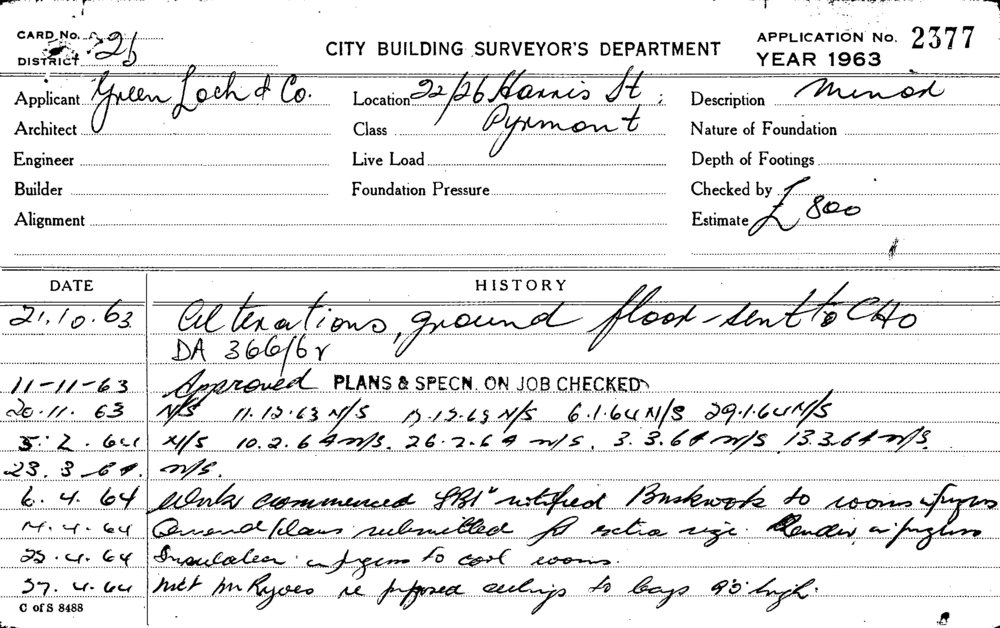 CARD No. 26
DISTRICT
CITY BUILDING SURVEYOR'S DEPARTMENT
APPLICATION No. 2377
YEAR 1963
Applicant Green Loch & Co. Location 22/26 Harris St; Description Minor
Architect Class Pyrmont Nature of Foundation
Engineer Live Load Depth of Footings
Builder Foundation Pressure Checked by
Alignment Estimate £800
DATE HISTORY
21.10.63 Alterations, ground floor - sent to CHO
DA 366/62
11-11-63 Approved PLANS & SPECN. ON JOB CHECKED
20.11.63 N/S 11.12.63 N/S 12.63 N/S 6.1.64 N/S 29.1.64 N/S
5.2.64 N/S 10.2.64 N/S. 26.2.64 N/S. 3.3.64 N/S 13.3.64 N/S.
23.3.64. N/S.
6.4.64 Works commenced notified Brickwork to rooms in progress
4.64 Amend plans submitted for extra size. Render in progress
4.64 Insulation in progress to cool rooms.
27.4.64 Met Mr Ryves re proposed ceilings to bays high.
C of S 8488